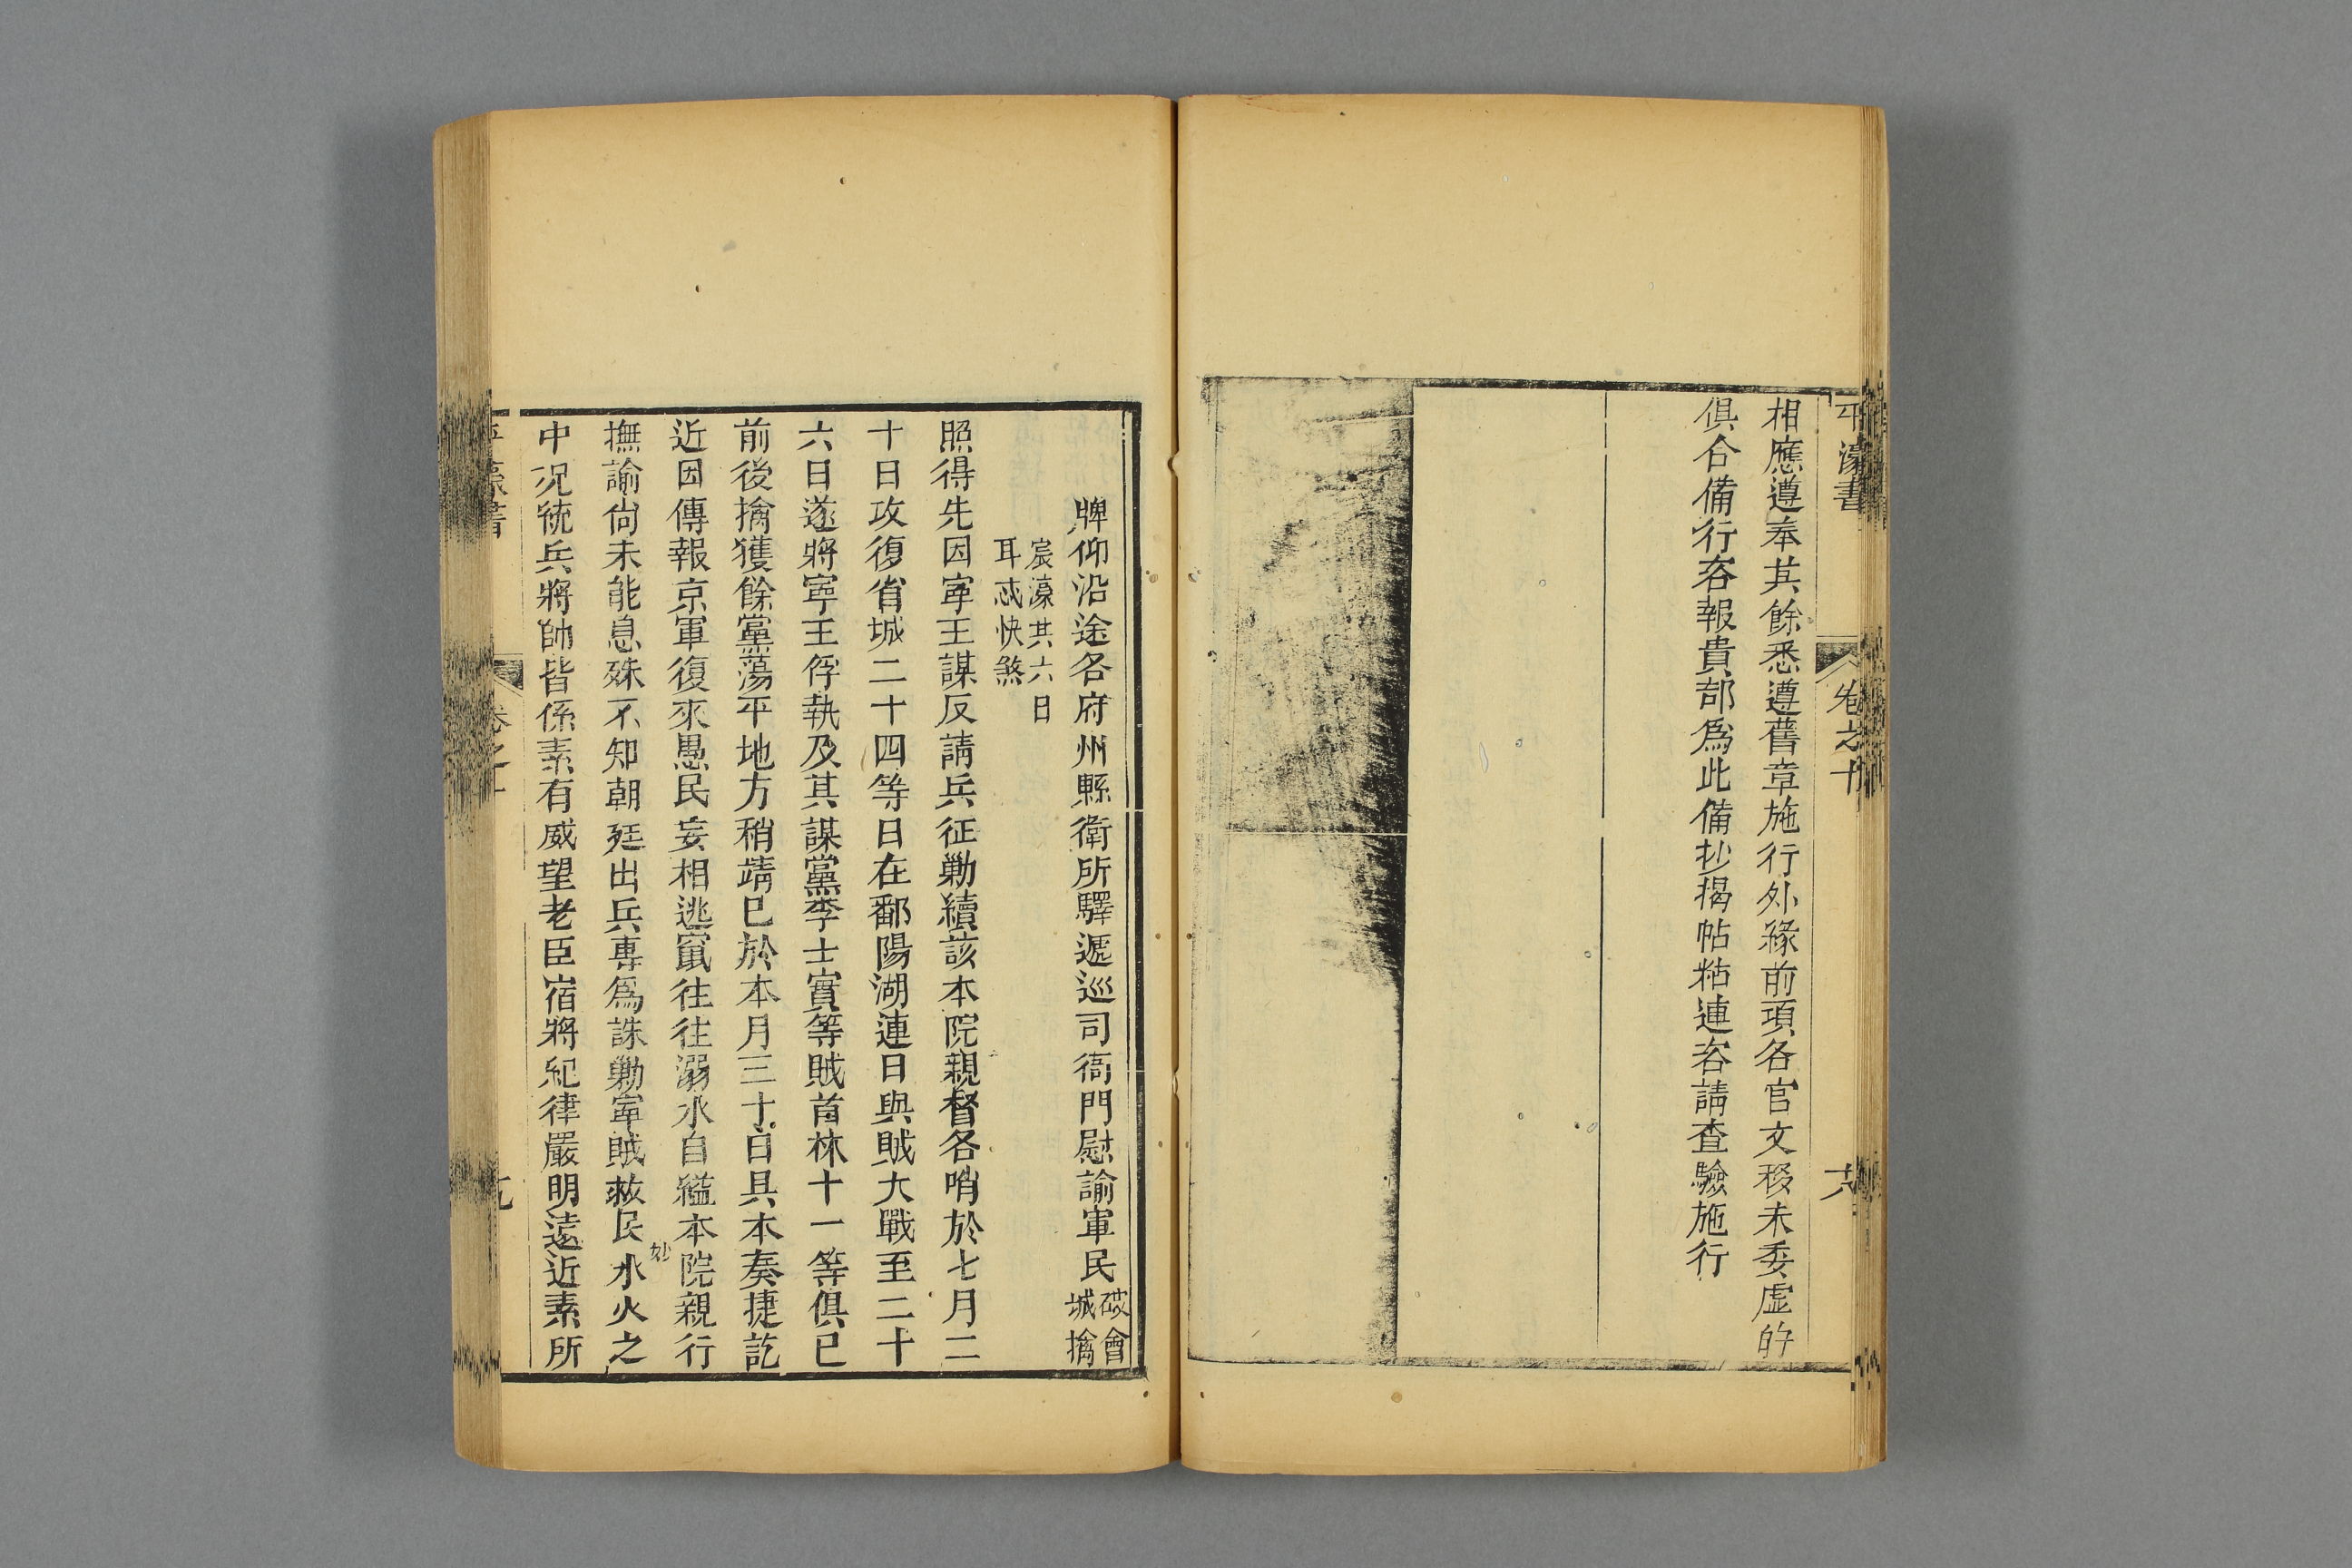 平濠書 卷之十 十八
相應遵奉其餘悉遵舊章施行外緣前項各官文移未委虛的
俱合備行咨報貴部爲此備抄揭帖粘連咨請查驗施行
牌仰沿途各府州縣衛所驛遞巡司衙門慰諭軍民
會
城擒
宸濠共六日
耳志快煞
照得先因寧王謀反請兵征勦續該本院親督各哨於七月二
十日攻復省城二十四等日在鄱陽湖連日與賊大戰至二十
六日遂將寧王俘執及其謀黨李士實等賊首林十一等俱已
前後擒獲餘黨蕩平地方稍靖已於本月三十日具本奏捷訖
近因傳報京軍復來愚民妄相逃竄往往溺水自縊本院親行
撫諭尙未能息殊不知朝廷出兵專爲誅勦寧賊救民水火之
妙
中况統兵將帥皆係素有威望老臣宿將紀律嚴明遠近素所